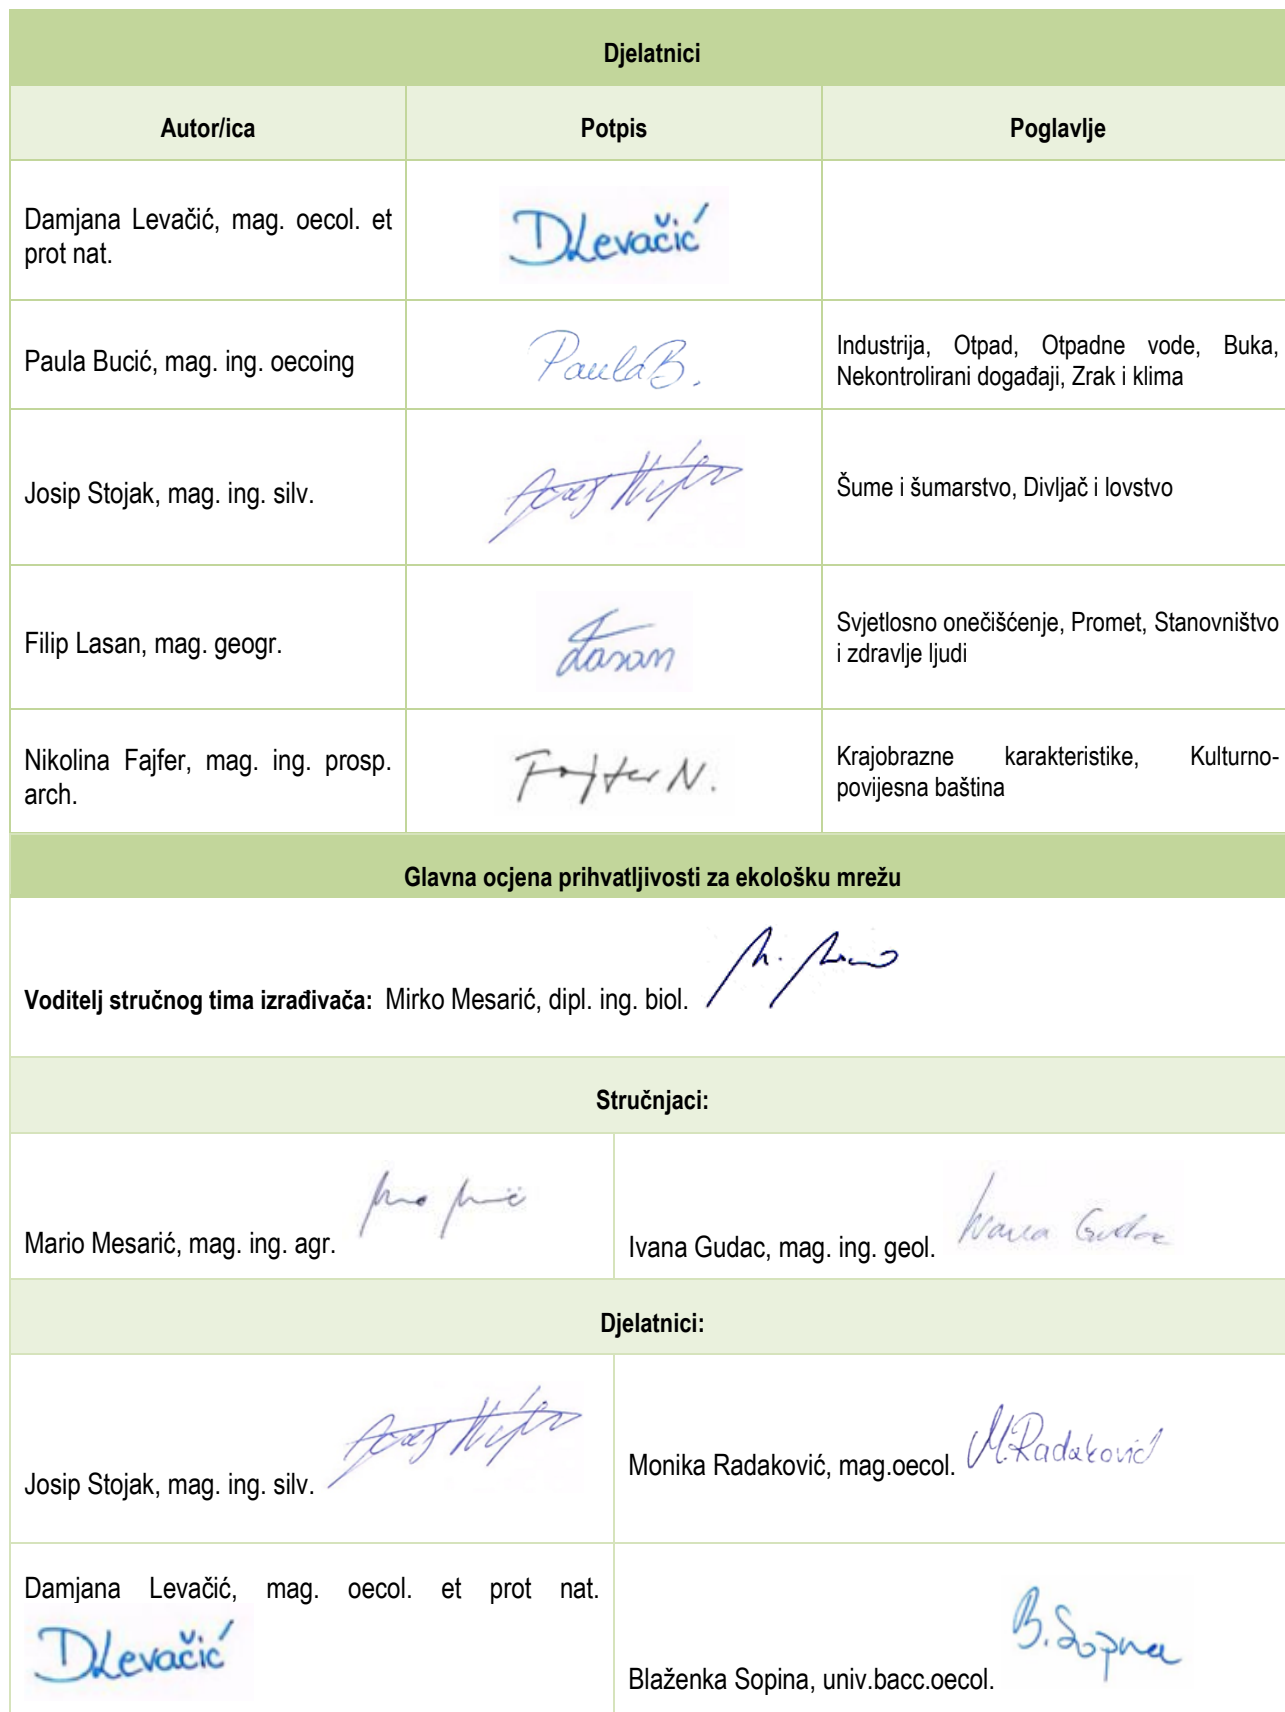 Djelatnici
Autor/ica Potpis Poglavlje
Damjana Levačić, mag. oecol. et
prot nat.
DLevačić
Paula Bucić, mag. ing. oecoing
PaulaB.
Industrija, Otpad, Otpadne vode, Buka,
Nekontrolirani događaji, Zrak i klima
Josip Stojak, mag. ing. silv.
Šume i šumarstvo, Divljač i lovstvo
Filip Lasan, mag. geogr.
Lasan
Svjetlosno onečišćenje, Promet, Stanovništvo
i zdravlje ljudi
Nikolina Fajfer, mag. ing. prosp.
arch.
Fajfer N.
Krajobrazne karakteristike, Kulturno-
povijesna baština
Glavna ocjena prihvatljivosti za ekološku mrežu
Voditelj stručnog tima izrađivača: Mirko Mesarić, dipl. ing. biol.
Stručnjaci:
Mario Mesarić, mag. ing. agr.
Ivana Gudac, mag. ing. geol. Ivana Gudac
Djelatnici:
Josip Stojak, mag. ing. silv.
Monika Radaković, mag.oecol. M.Radaković
Damjana Levačić, mag. oecol. et prot nat.
DLevačić
Blaženka Sopina, univ.bacc.oecol. B.Sopina